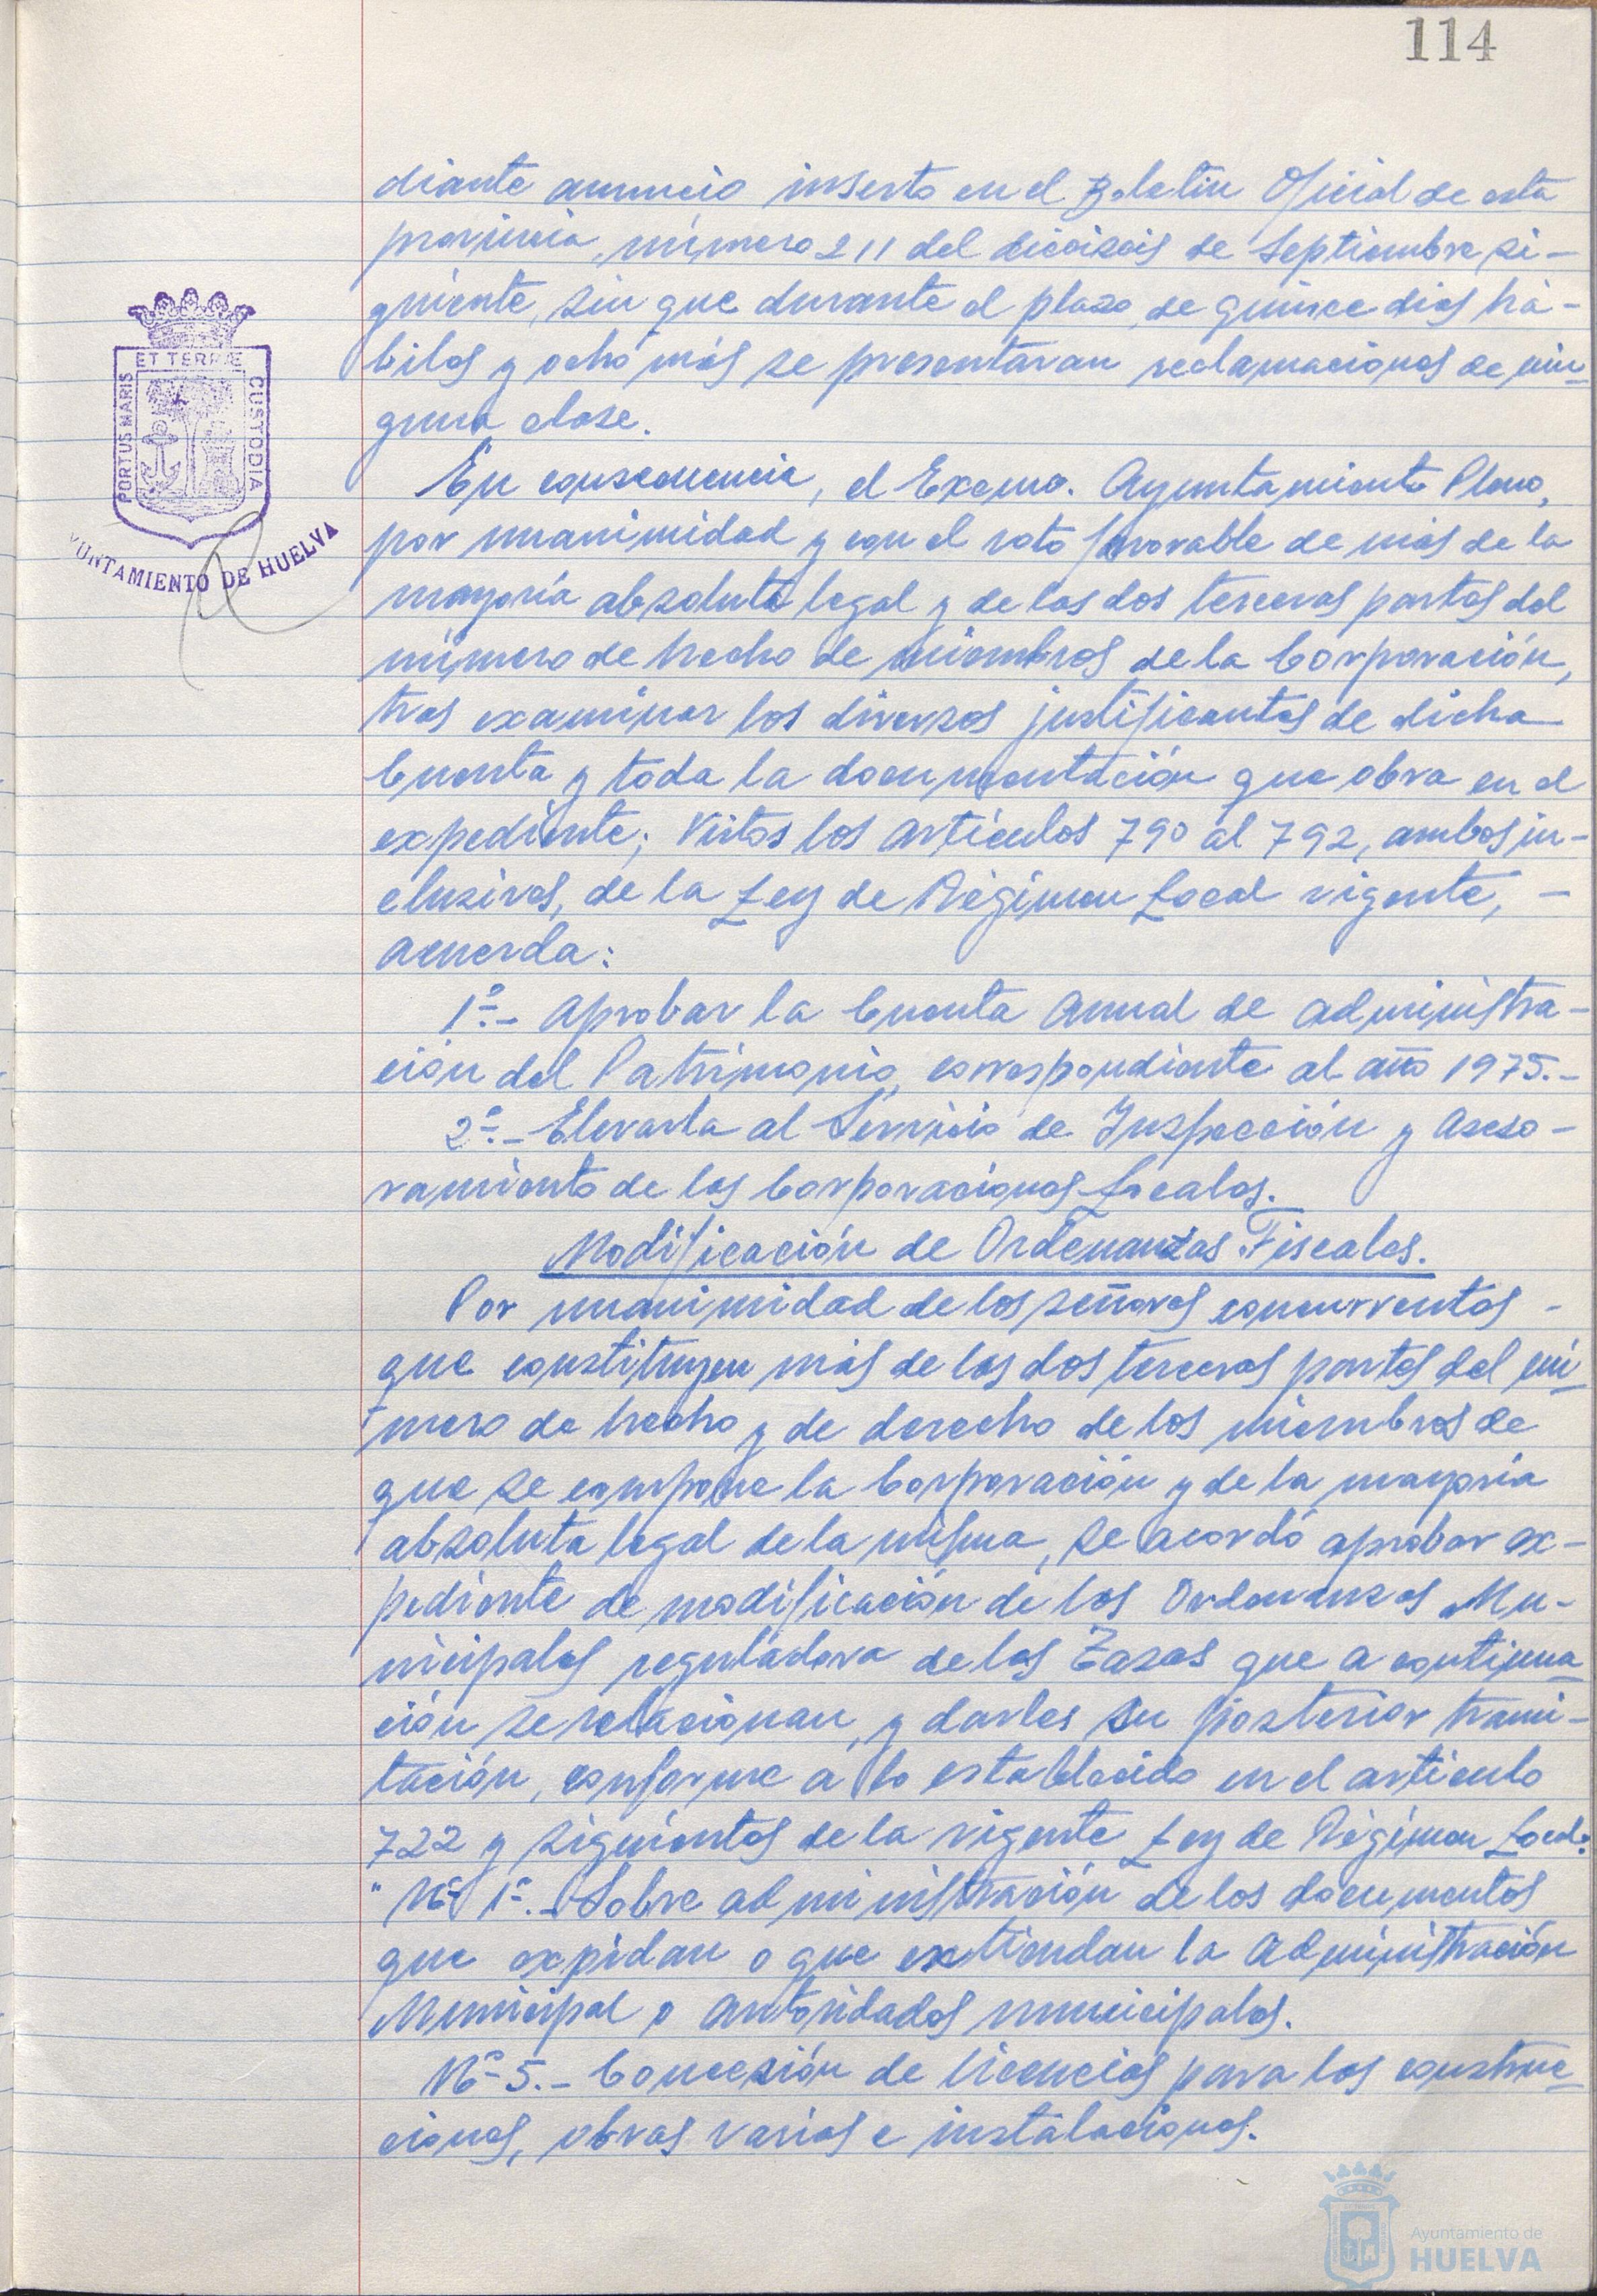 114
diante anuncio inserto en el Boletin Oficial de esta
provincia, número 211 del dieciseis de Septiembre si-
guiente, sin que durante el plazo de quince dias há-
biles y ocho más se presentaran reclamaciones de nin-
guna clase.
En consecuencia, el Excmo. Ayuntamiento Pleno,
por unanimidad y con el voto favorable de más de la
mayoría absoluta legal y de las dos terceras partes del
número de hecho de miembros de la Corporación,
tras examinar los diversos justificantes de dicha
Cuenta y toda la documentación que obra en el
expediente; Vistos los artículos 790 al 792, ambos in-
clusives, de la Ley de Régimen Local vigente, -
acuerda:
1º.- Aprobar la Cuenta Anual de Administra-
ción del Patrimonio, correspondiente al año 1975.-
2º.- Elevarla al Servicio de Inspección y Aseso-
ramiento de las Corporaciones Locales.
Modificación de Ordenanzas Fiscales.
Por unanimidad de los señores concurrentes -
que constituyen más de las dos terceras partes del nú-
mero de hecho y de derecho de los miembros de
que se compone la Corporación y de la mayoria
absoluta legal de la misma, se acordó aprobar ex-
pediente de modificación de las Ordenanzas Mu-
nicipales reguladora de las Tasas que a continua-
ción se relacionan, y darles su posterior trami-
tación, conforme a lo establecido en el artículo
722 y siguientes de la vigente Ley de Régimen Local:
" Nº 1º.- Sobre administración de los documentos
que expidan o que extiendan la Administración
Municipal o Autoridades municipales.
Nº 5.- Concesión de licencias para las construc-
ciones, obras varias e instalaciones.
PORTUS MARIS
ET TERRAE
CUSTODIA
YUNTAMIENTO DE HUELVA
Ayuntamiento de
HUELVA